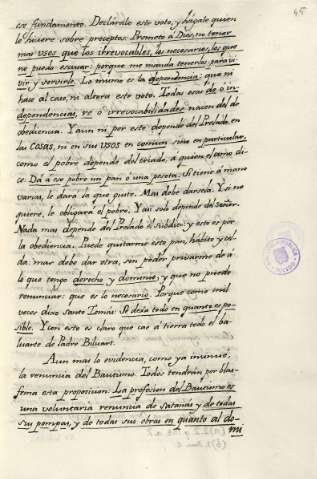 45
es fundamento. Declárole este voto, y hágale quien
le hiciere sobre preceptos: Prometo á Dios, no tener
mas usos que los irrevocables, los necesarios, los que
no puedo escusar: porque me manda tenerlos para vi-
vir y servirle. Lo mismo es la dependencia: que ni
hace al caso, ni altera este voto. Todas esas de o in-
dependencias, re o irrevocabilidades nacen del de
obediencia. Y aun ni por este depende del Prelado en
las cosas, ni en sus usos en comun sino en particular,
como el pobre depende del criado, á quien el amo di-
ce. Dá á ese pobre un pan o una peseta. Si tiene á mano
varias, le dará la que guste. Mas debe darsela. Y si no
quiere, le obligará el pobre. Y asi solo depende del señor.
Nada mas depende del Prelado el subdito: y esto es por
la obediencia. Puede quitarme este pan, habito y cel-
da: mas debe dar otra, sin poder privarme de á
lo que tengo derecho y dominio, y que no puedo
renunciar: que es lo necesario. Porque como mil
veces dixo Santo Tomas: Se dexa todo en quanto es po-
sible. Y con esto es claro que cae á tierra todo el ba-
luarte de Padre Biluart.
Aun mas lo evidencia, como ya insinué,
la renuncia del Bautismo. Todos tendrán por blas-
fema esta proposicion: La profesion del Bautismo es
una voluntaria renuncia de satanás y de todas
sus pompas, y de todas sus obras en quanto al do-
mi